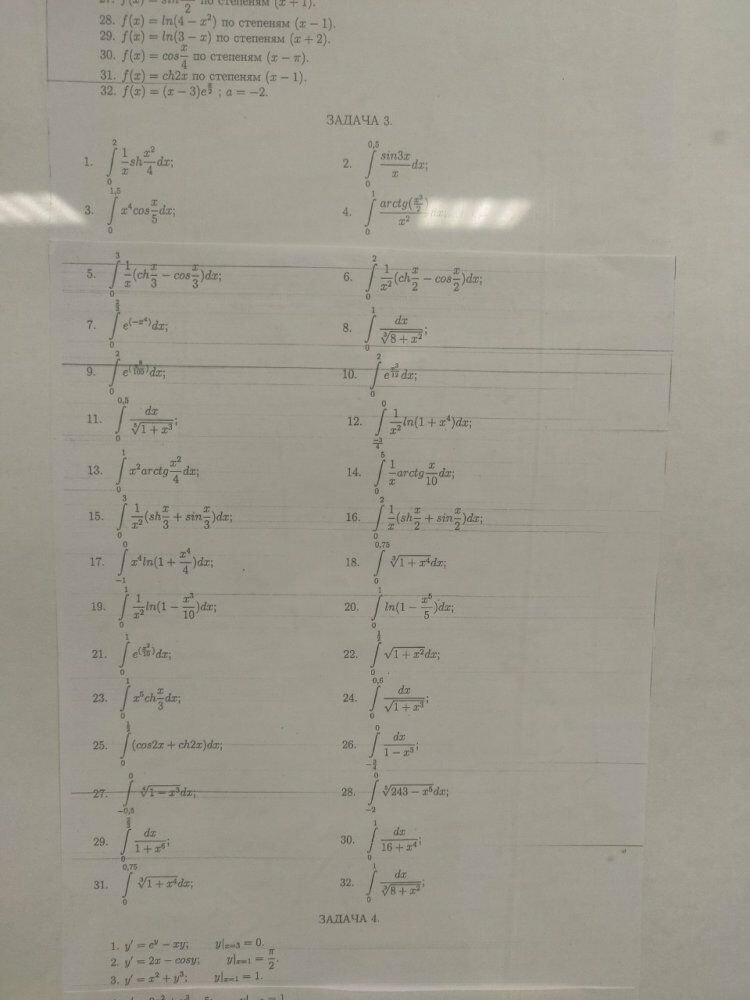 27. f(x) = sin x/2 по степеням (x + 1).
28. f(x) = ln(4 − x²) по степеням (x − 1).
29. f(x) = ln(3 − x) по степеням (x + 2).
30. f(x) = cos x/4 по степеням (x − π).
31. f(x) = ch2x по степеням (x − 1).
32. f(x) = (x − 3)e^(x/2) ; a = −2.
ЗАДАЧА 3.
1. ∫₀² 1/x sh x²/4 dx; 2. ∫₀^0,5 sin3x/x dx;
3. ∫₀^1,5 x⁴cos x/5 dx; 4. ∫₀¹ arctg(x²/2)/x²
5. ∫₀³ 1/x (ch x/3 − cos x/3)dx; 6. ∫₀² 1/x² (ch x/2 − cos x/2)dx;
7. ∫₀ e^(−x⁴)dx; 8. ∫₀¹ dx/∛(8 + x²);
9. ∫₀² dx; 10. ∫₀² e^(x³/12) dx;
11. ∫₀^0,5 dx/⁵√(1 + x³); 12. ∫_(−3/4)^0 1/x² ln(1 + x⁴)dx;
13. ∫₀¹ x²arctg x²/4 dx; 14. ∫₀⁵ 1/x arctg x/10 dx;
15. ∫₀³ 1/x² (sh x/3 + sin x/3)dx; 16. ∫₀² 1/x (sh x/2 + sin x/2)dx;
17. ∫_(−1)^0 x⁴ln(1 + x⁴/4)dx; 18. ∫₀^0,75 ∛(1 + x⁴)dx;
19. ∫₀¹ 1/x² ln(1 − x³/10)dx; 20. ∫₀¹ ln(1 − x⁵/5)dx;
21. ∫₀¹ dx; 22. ∫₀ √(1 + x²)dx;
23. ∫₀¹ x⁵ch x/3 dx; 24. ∫₀^0,6 dx/√(1 + x³);
25. ∫₀ (cos2x + ch2x)dx; 26. ∫_(−3/4)^0 dx/(1 − x⁵);
27. ∫_(−0,5)^0 √(1 − x³)dx; 28. ∫_(−2)^0 ⁵√(243 − x⁵)dx;
29. ∫₀ dx/(1 + x⁶); 30. ∫₀¹ dx/(16 + x⁴);
31. ∫₀^0,75 ∛(1 + x⁴)dx; 32. ∫₀¹ dx/∛(8 + x²);
ЗАДАЧА 4.
1. y′ = eʸ − xy; y|ₓ₌₃ = 0.
2. y′ = 2x − cosy; y|ₓ₌₁ = π/2.
3. y′ = x² + y³; y|ₓ₌₁ = 1.